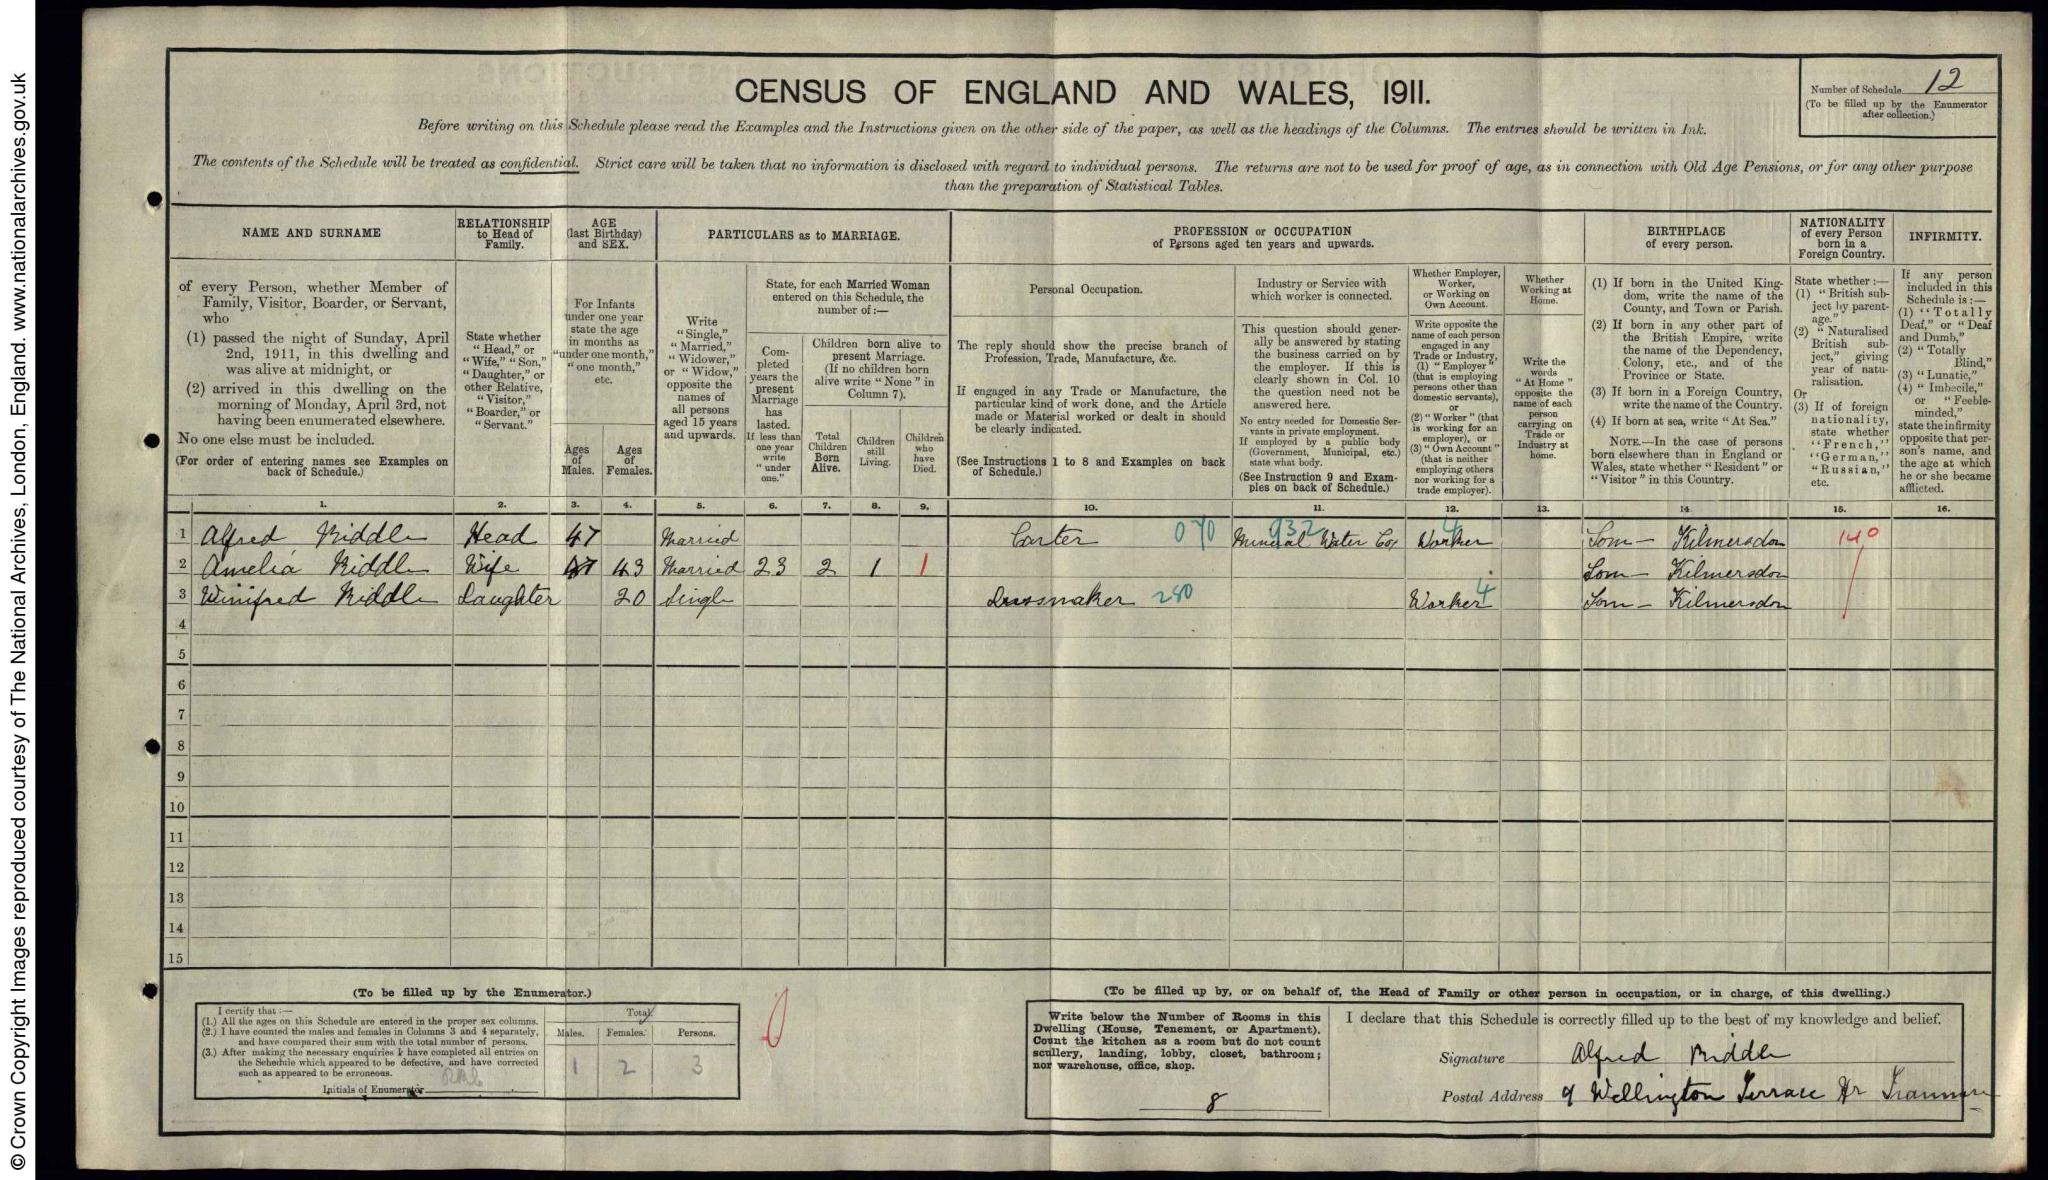 © Crown Copyright Images reproduced courtesy of The National Archives, London, England. www.nationalarchives.gov.uk
CENSUS OF ENGLAND AND WALES, 1911.
Number of Schedule 12
(To be filled up by the Enumerator
after collection.)
Before writing on this Schedule please read the Examples and the Instructions given on the other side of the paper, as well as the headings of the Columns. The entries should be written in Ink.
The contents of the Schedule will be treated as confidential. Strict care will be taken that no information is disclosed with regard to individual persons. The returns are not to be used for proof of age, as in connection with Old Age Pensions, or for any other purpose
than the preparation of Statistical Tables.
NAME AND SURNAME
of every Person, whether Member of
Family, Visitor, Boarder, or Servant,
who
(1) passed the night of Sunday, April
2nd, 1911, in this dwelling and
was alive at midnight, or
(2) arrived in this dwelling on the
morning of Monday, April 3rd, not
having been enumerated elsewhere.
No one else must be included.
(For order of entering names see Examples on
back of Schedule.)
RELATIONSHIP
to Head of
Family.
State whether
"Head," or
"Wife," "Son,"
"Daughter," or
other Relative,
"Visitor,"
"Boarder," or
"Servant."
AGE
(last Birthday)
and SEX.
For Infants
under one year
state the age
in months as
"under one month,"
"one month,"
etc.
Ages
of
Males.
Ages
of
Females.
PARTICULARS as to MARRIAGE.
Write
"Single,"
"Married,"
"Widower,"
or "Widow,"
opposite the
names of
all persons
aged 15 years
and upwards.
State, for each Married Woman
entered on this Schedule, the
number of:—
Com-
pleted
years the
present
Marriage
has
lasted.
If less than
one year
write
"under
one."
Children born alive to
present Marriage.
(If no children born
alive write "None" in
Column 7).
Total
Children
Born
Alive.
Children
still
Living.
Children
who
have
Died.
PROFESSION or OCCUPATION
of Persons aged ten years and upwards.
Personal Occupation.
The reply should show the precise branch of
Profession, Trade, Manufacture, &c.
If engaged in any Trade or Manufacture, the
particular kind of work done, and the Article
made or Material worked or dealt in should
be clearly indicated.
(See Instructions 1 to 8 and Examples on back
of Schedule.)
Industry or Service with
which worker is connected.
This question should gener-
ally be answered by stating
the business carried on by
the employer. If this is
clearly shown in Col. 10
the question need not be
answered here.
No entry needed for Domestic Ser-
vants in private employment.
If employed by a public body
(Government, Municipal, etc.)
state what body.
(See Instruction 9 and Exam-
ples on back of Schedule.)
Whether Employer,
Worker,
or Working on
Own Account.
Write opposite the
name of each person
engaged in any
Trade or Industry,
(1) "Employer"
(that is employing
persons other than
domestic servants),
or
(2) "Worker" (that
is working for an
employer), or
(3) "Own Account"
(that is neither
employing others
nor working for a
trade employer).
Whether
Working at
Home.
Write the
words
"At Home"
opposite the
name of each
person
carrying on
Trade or
Industry at
home.
BIRTHPLACE
of every person.
(1) If born in the United King-
dom, write the name of the
County, and Town or Parish.
(2) If born in any other part of
the British Empire, write
the name of the Dependency,
Colony, etc., and of the
Province or State.
(3) If born in a Foreign Country,
write the name of the Country.
(4) If born at sea, write "At Sea."
NOTE.—In the case of persons
born elsewhere than in England or
Wales, state whether "Resident" or
"Visitor" in this Country.
NATIONALITY
of every Person
born in a
Foreign Country.
State whether:—
(1) "British sub-
ject by parent-
age."
(2) "Naturalised
British sub-
ject," giving
year of natu-
ralisation.
Or
(3) If of foreign
nationality,
state whether
"French,"
"German,"
"Russian,"
etc.
INFIRMITY.
If any person
included in this
Schedule is:—
(1) "Totally
Deaf," or "Deaf
and Dumb,"
(2) "Totally
Blind,"
(3) "Lunatic,"
(4) "Imbecile,"
or "Feeble-
minded,"
state the infirmity
opposite that per-
son's name, and
the age at which
he or she became
afflicted.
1. 2. 3. 4. 5. 6. 7. 8. 9. 10. 11. 12. 13. 14. 15. 16.
1 Alfred Riddle Head 47 Married Carter 070 Mineral Water Co 932 Worker 4 Som— Kilmersdon 140
2 Amelia Riddle Wife 43 Married 23 2 1 1 Som— Kilmersdon
3 Winifred Riddle Daughter 20 Single Dressmaker 280 Worker 4 Som— Kilmersdon
4
5
6
7
8
9
10
11
12
13
14
15
(To be filled up by the Enumerator.)
I certify that:—
(1.) All the ages on this Schedule are entered in the proper sex columns.
(2.) I have counted the males and females in Columns 3 and 4 separately,
and have compared their sum with the total number of persons.
(3.) After making the necessary enquiries I have completed all entries on
the Schedule which appeared to be defective, and have corrected
such as appeared to be erroneous.
Initials of Enumerator
Total.
Males. Females. Persons.
1 2 3
(To be filled up by, or on behalf of, the Head of Family or other person in occupation, or in charge, of this dwelling.)
Write below the Number of Rooms in this
Dwelling (House, Tenement, or Apartment).
Count the kitchen as a room but do not count
scullery, landing, lobby, closet, bathroom;
nor warehouse, office, shop.
8
I declare that this Schedule is correctly filled up to the best of my knowledge and belief.
Signature Alfred Riddle
Postal Address 9 Wellington Terrace Hr Tranmere